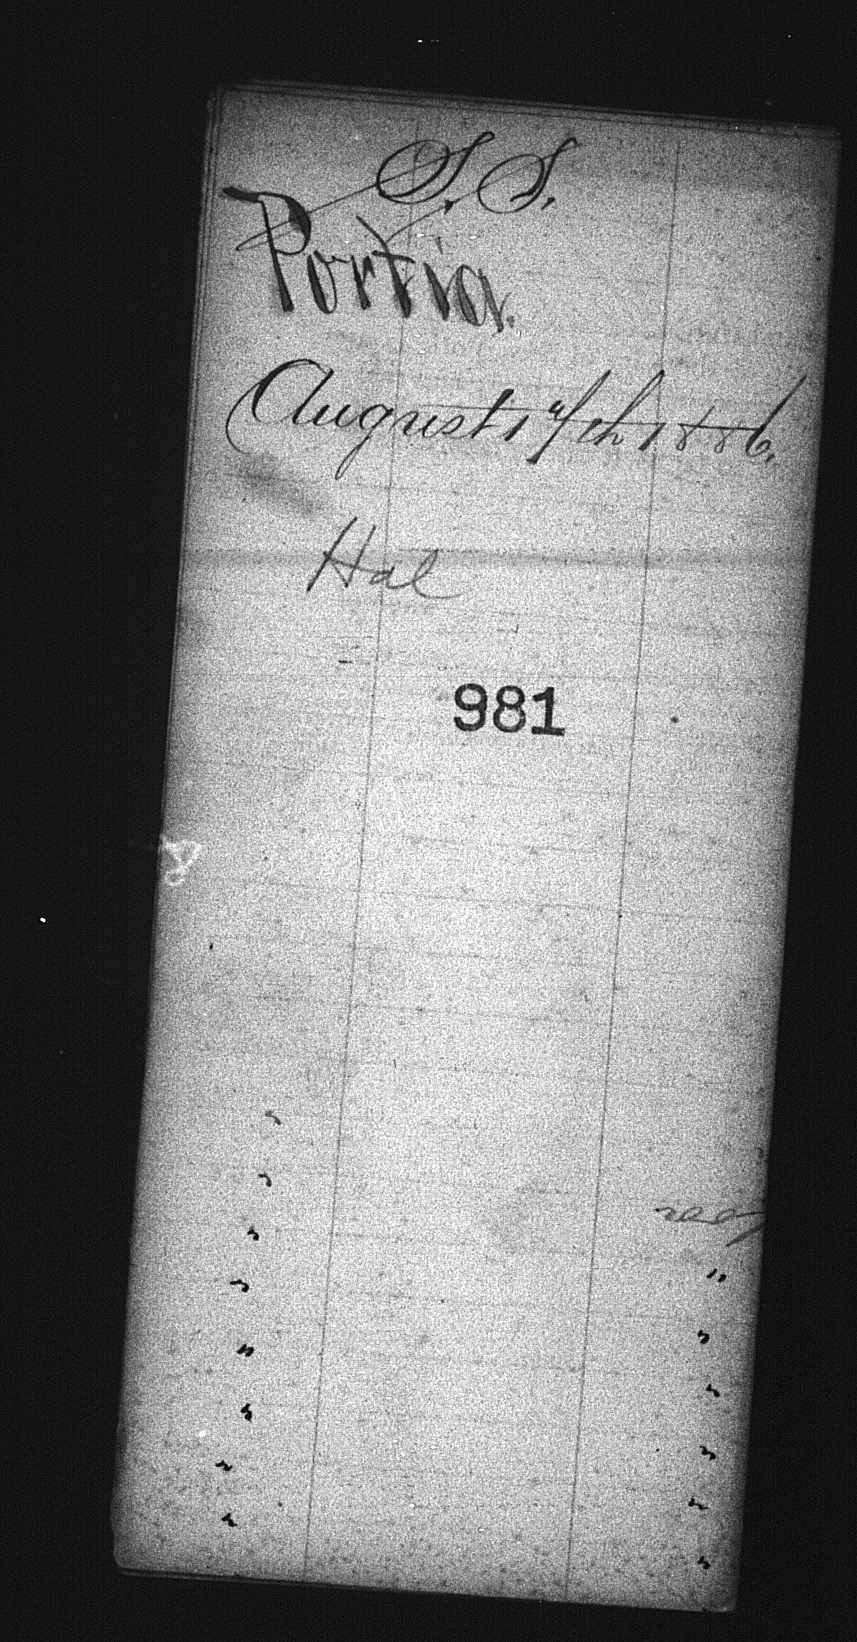 S. S.
Portia.
August 17th 1886.
Hal
981